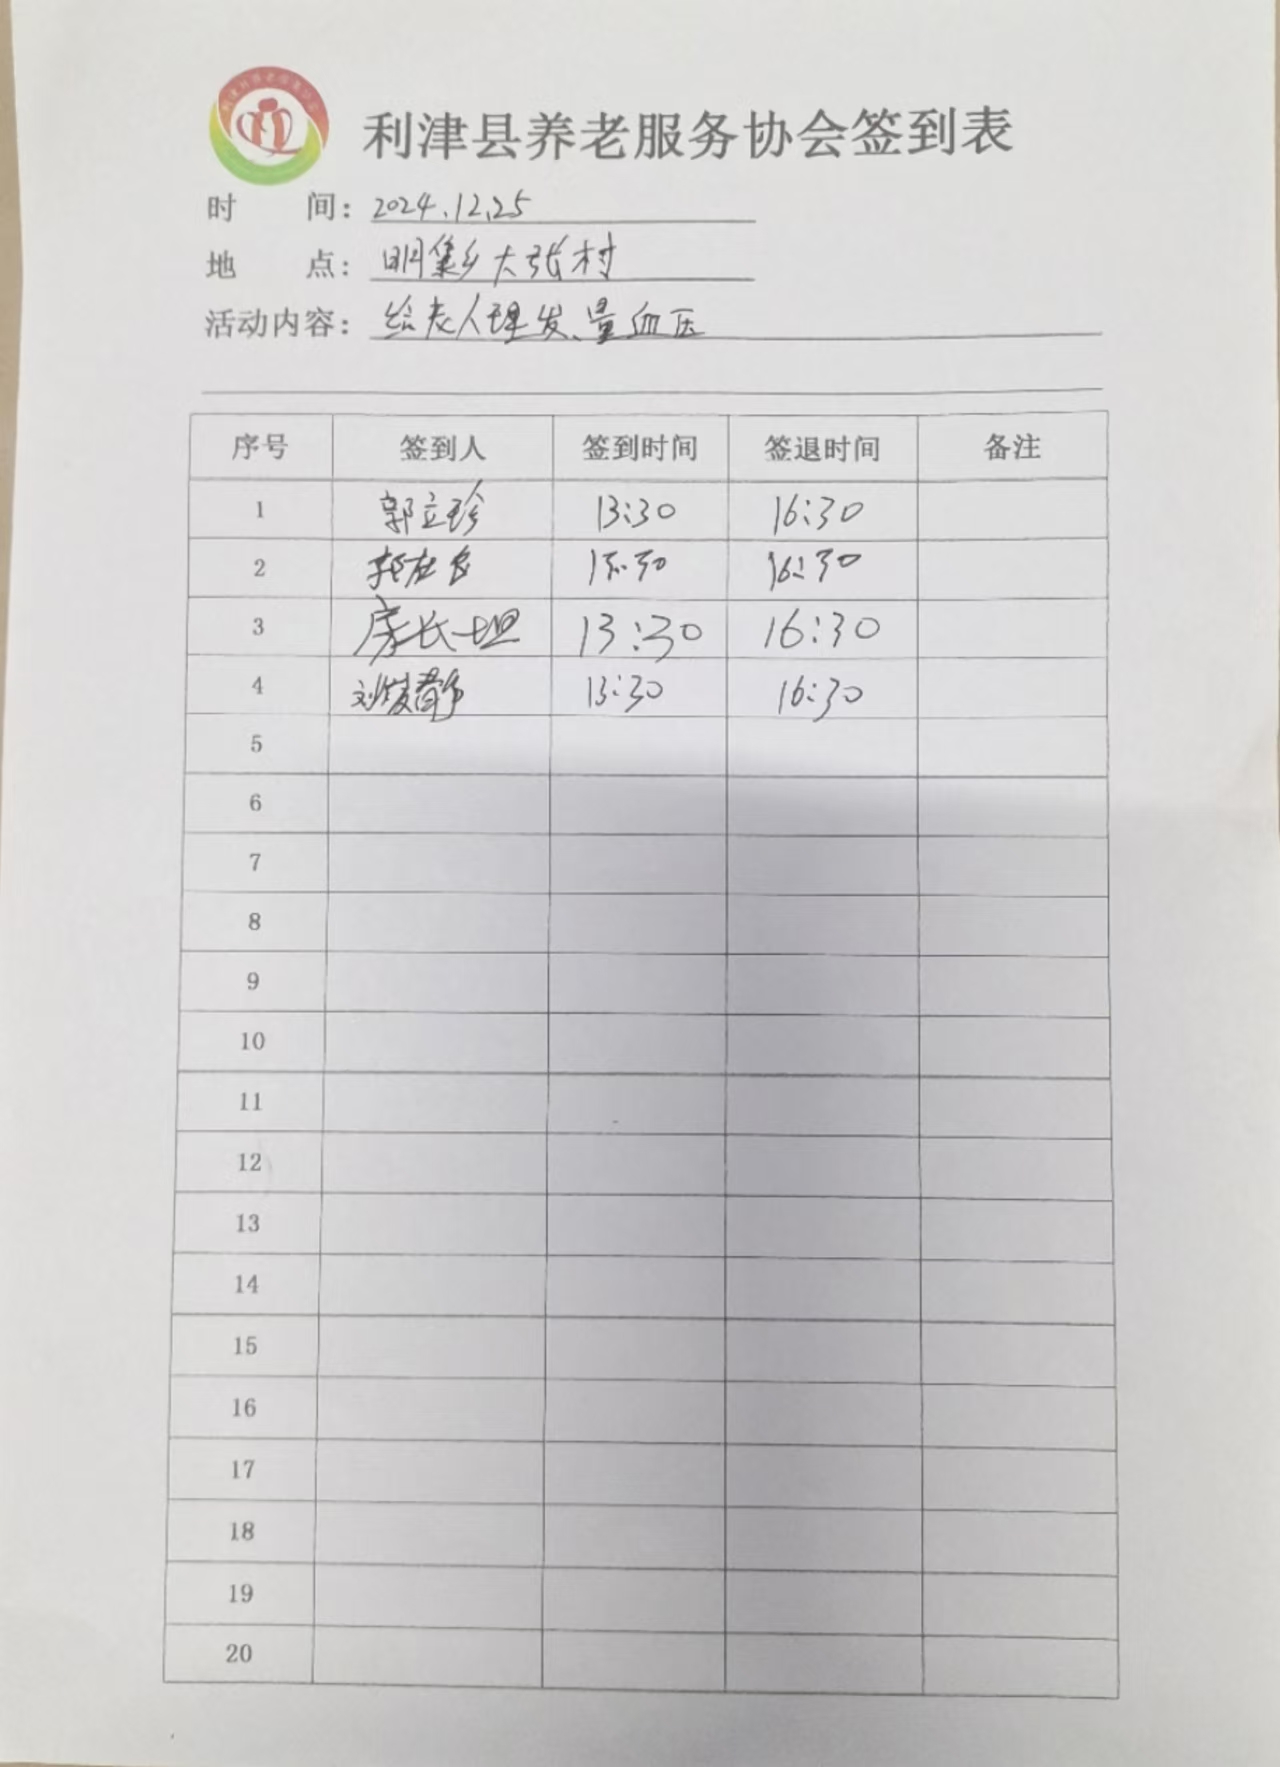 利津县养老服务协会
利津县养老服务协会签到表
时 间：2024.12.25
地 点：明集乡大张村
活动内容：给老人理发、量血压
序号 签到人 签到时间 签退时间 备注
1 郭立珍 13:30 16:30
2 13:30 16:30
3 房长坦 13:30 16:30
4 刘 静 13:30 16:30
5
6
7
8
9
10
11
12
13
14
15
16
17
18
19
20